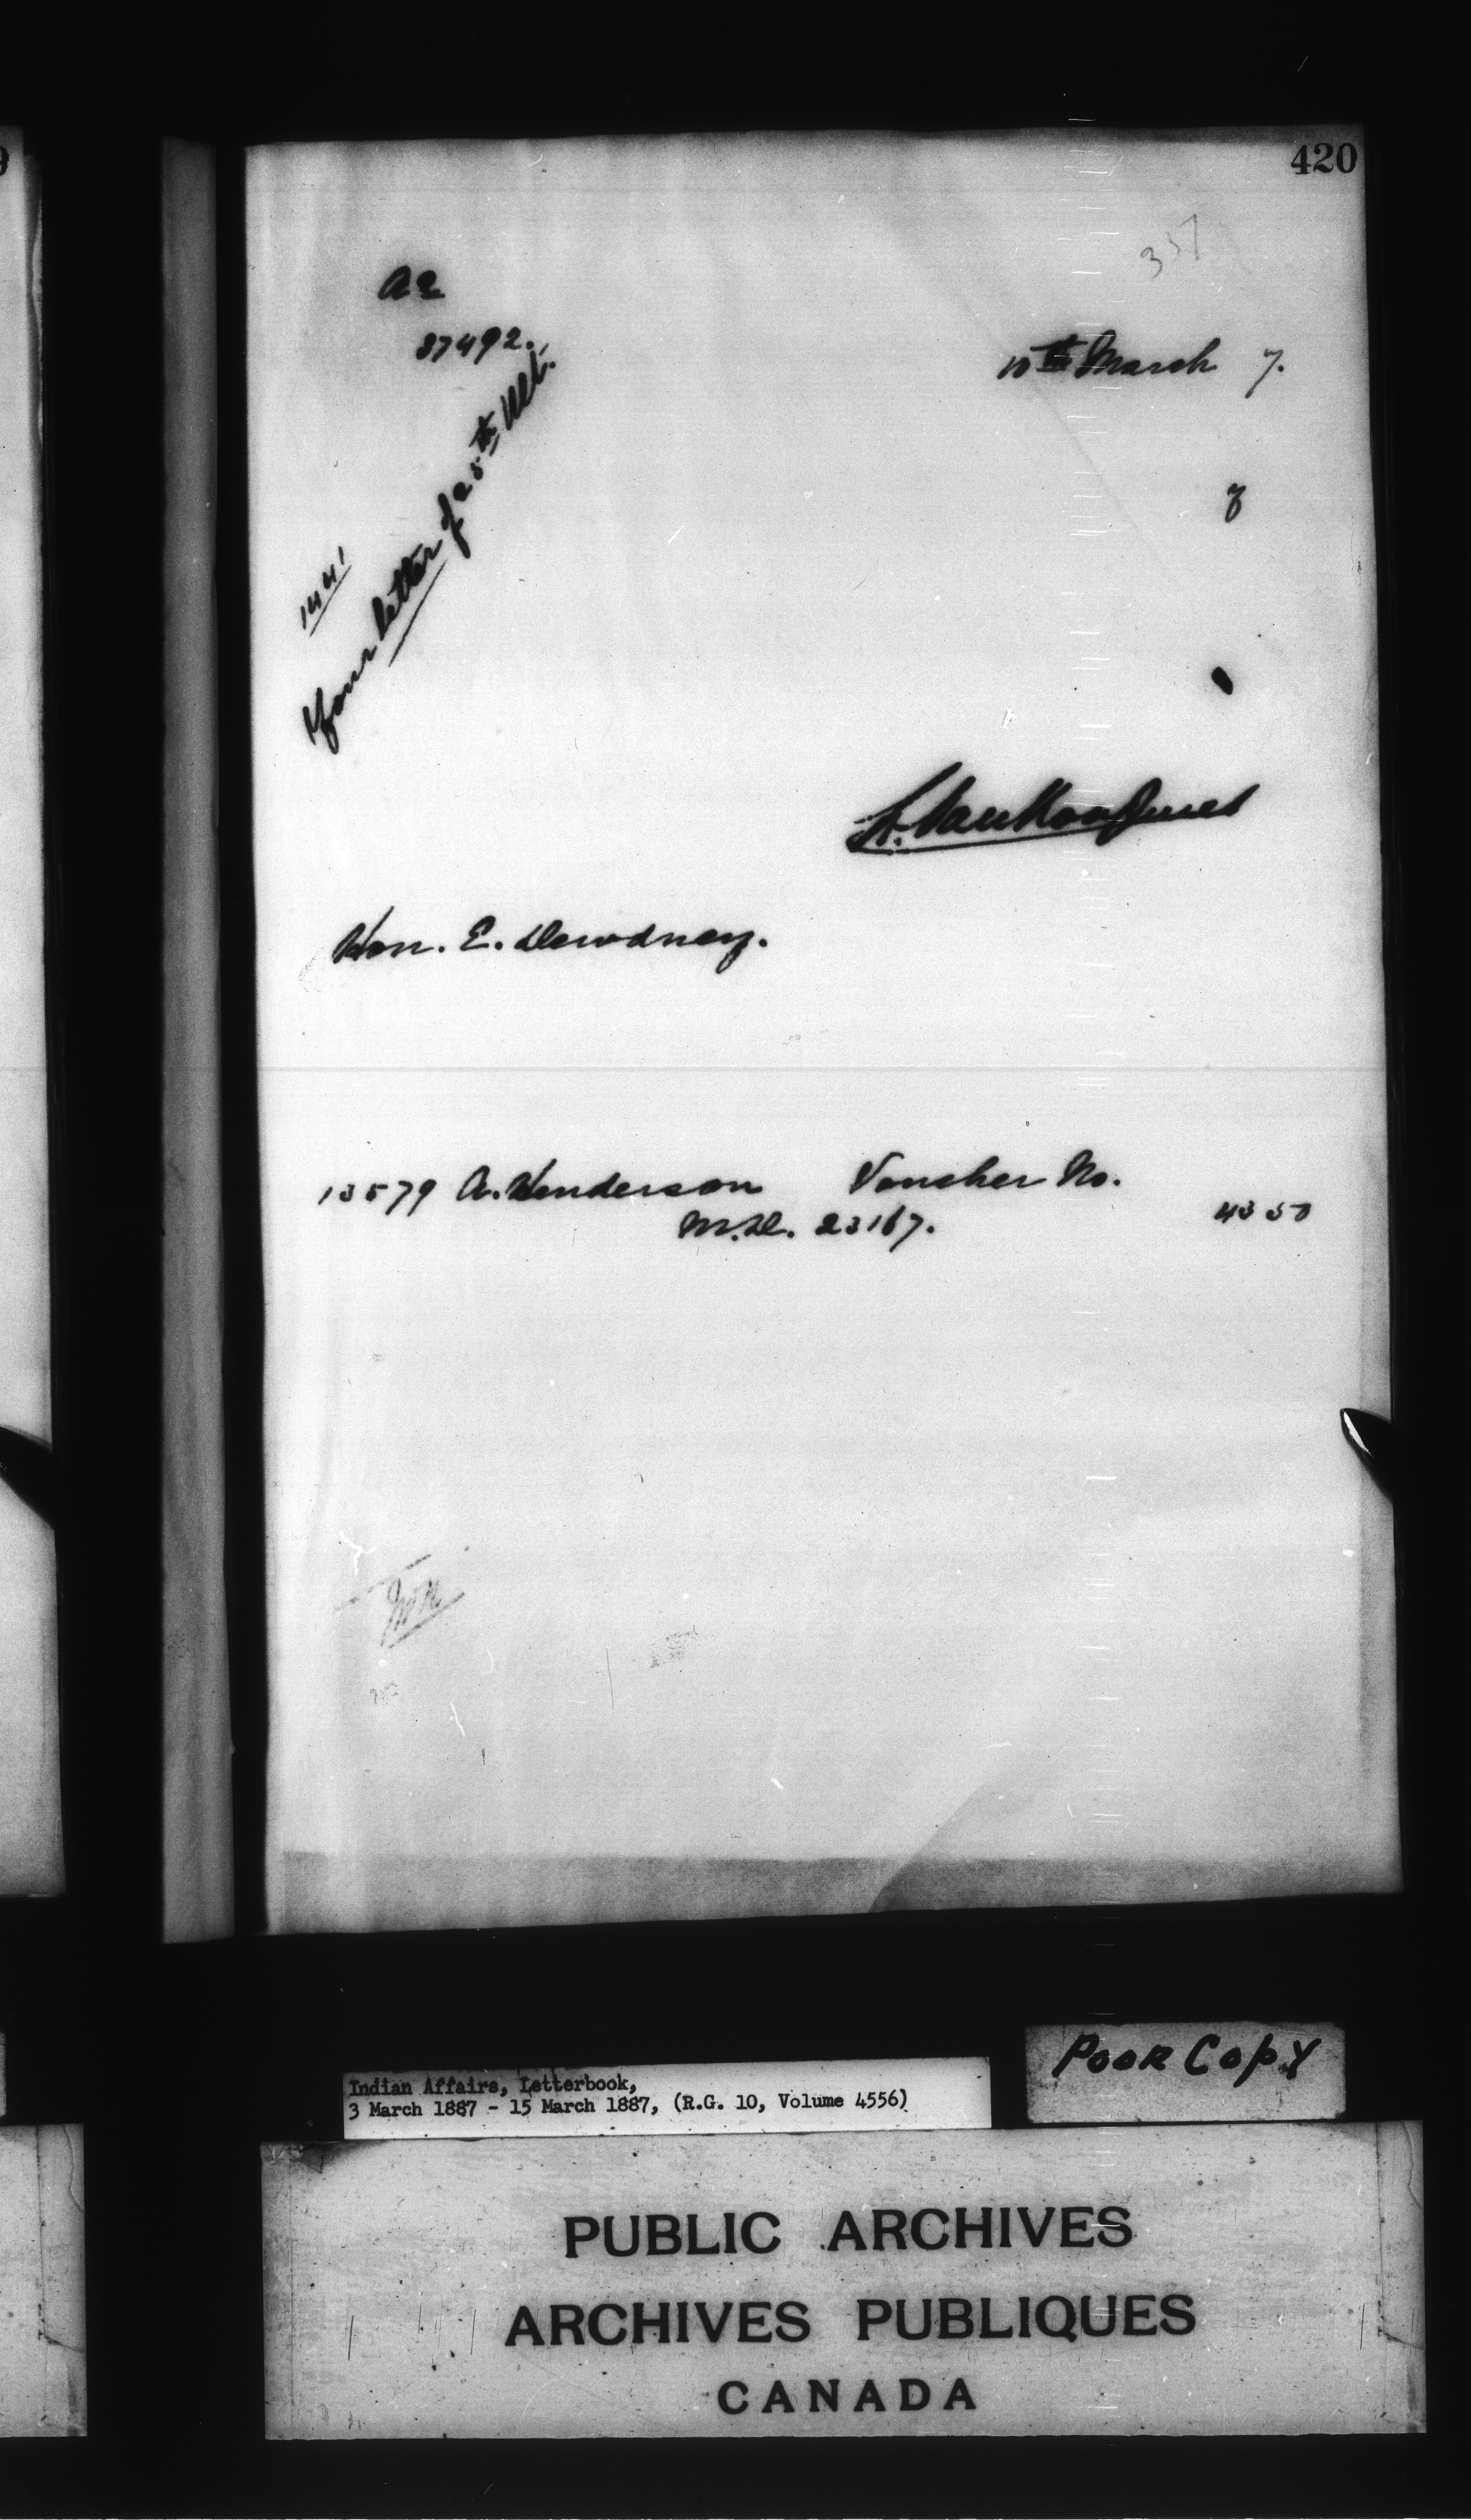 420
357
A2
37492.
10th March 7.
7
1441
Your letter of 25th Ult.
L. VanKoughnet
Hon. E. Dewdney.
13579 A. Henderson Voucher No.
M.D. 23167. 43 50
Poor Copy
Indian Affairs, Letterbook,
3 March 1887 - 15 March 1887, (R.G. 10, Volume 4556)
PUBLIC ARCHIVES
ARCHIVES PUBLIQUES
CANADA